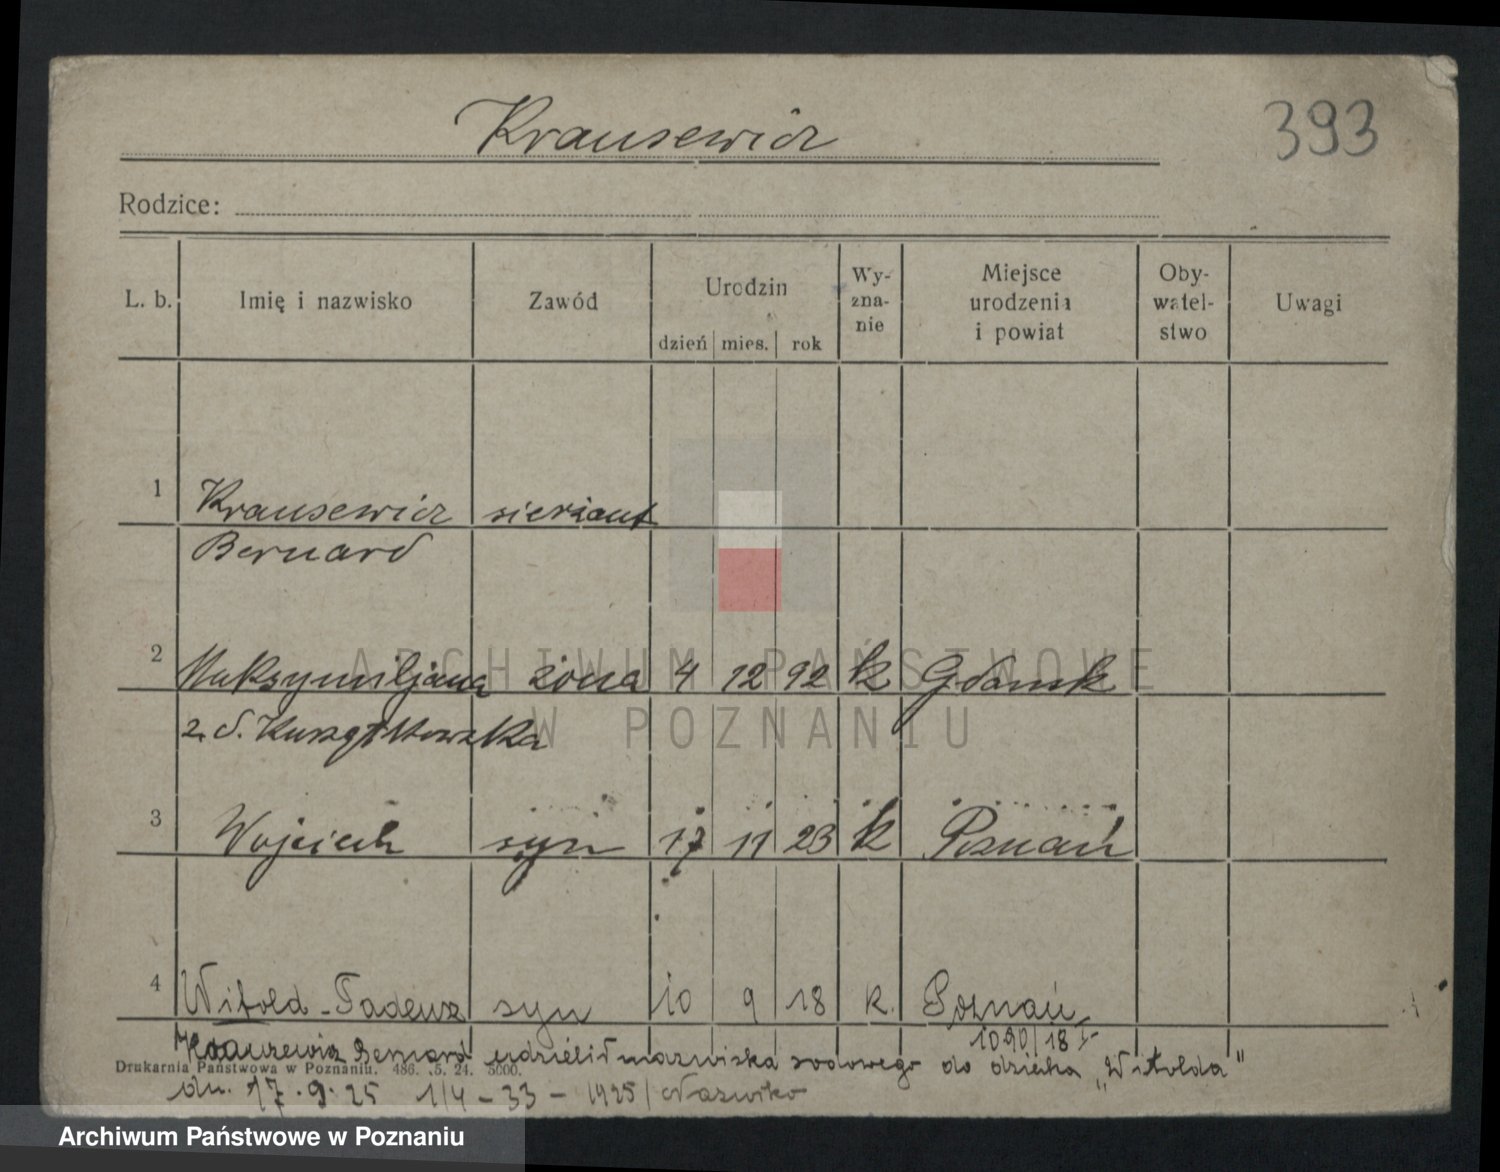 Krausewicz
393
Rodzice:
L. b. Imię i nazwisko Zawód Urodzin dzień mies. rok Wy-zna-nie Miejsce urodzenia i powiat Oby-watel-stwo Uwagi
1 Krausewicz sierżant
Bernard
2 Maksymiljana żona 4 12 92 k Gdańsk
z d.
3 Wojciech syn 17 11 23 k Poznań
4 Witold-Tadeusz syn 10 9 18 k. Poznań
1090/18
Krauzewicz Bernard udzielił nazwiska rodowego do dziecka „Witolda"
Drukarnia Państwowa w Poznaniu. 486. 5. 24. 5000.
dn. 17.9.25 1/4 - 33 - 1925/Nazwisko
ARCHIWUM PAŃSTWOWE
W POZNANIU
Archiwum Państwowe w Poznaniu